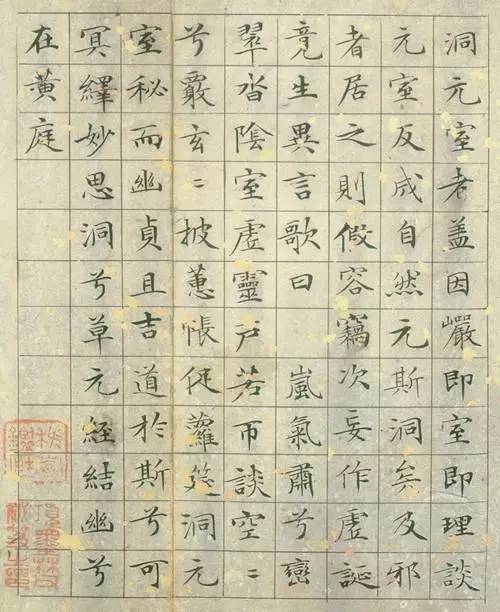 洞元室者盖因巖即室即理談
元室反成自然元斯洞矣及邪
者居之則假容竊次妄作虛誕
竞生異言歌曰 嵐氣肅兮巒
翠沓陰室虛靈戶若帀談空〻
兮覈玄〻披蕙帳促蘿筵洞元
室秘而幽貞且吉道於斯兮可
冥繹妙思洞兮草元經結幽兮
在黃庭
項墨林父
祕笈之印